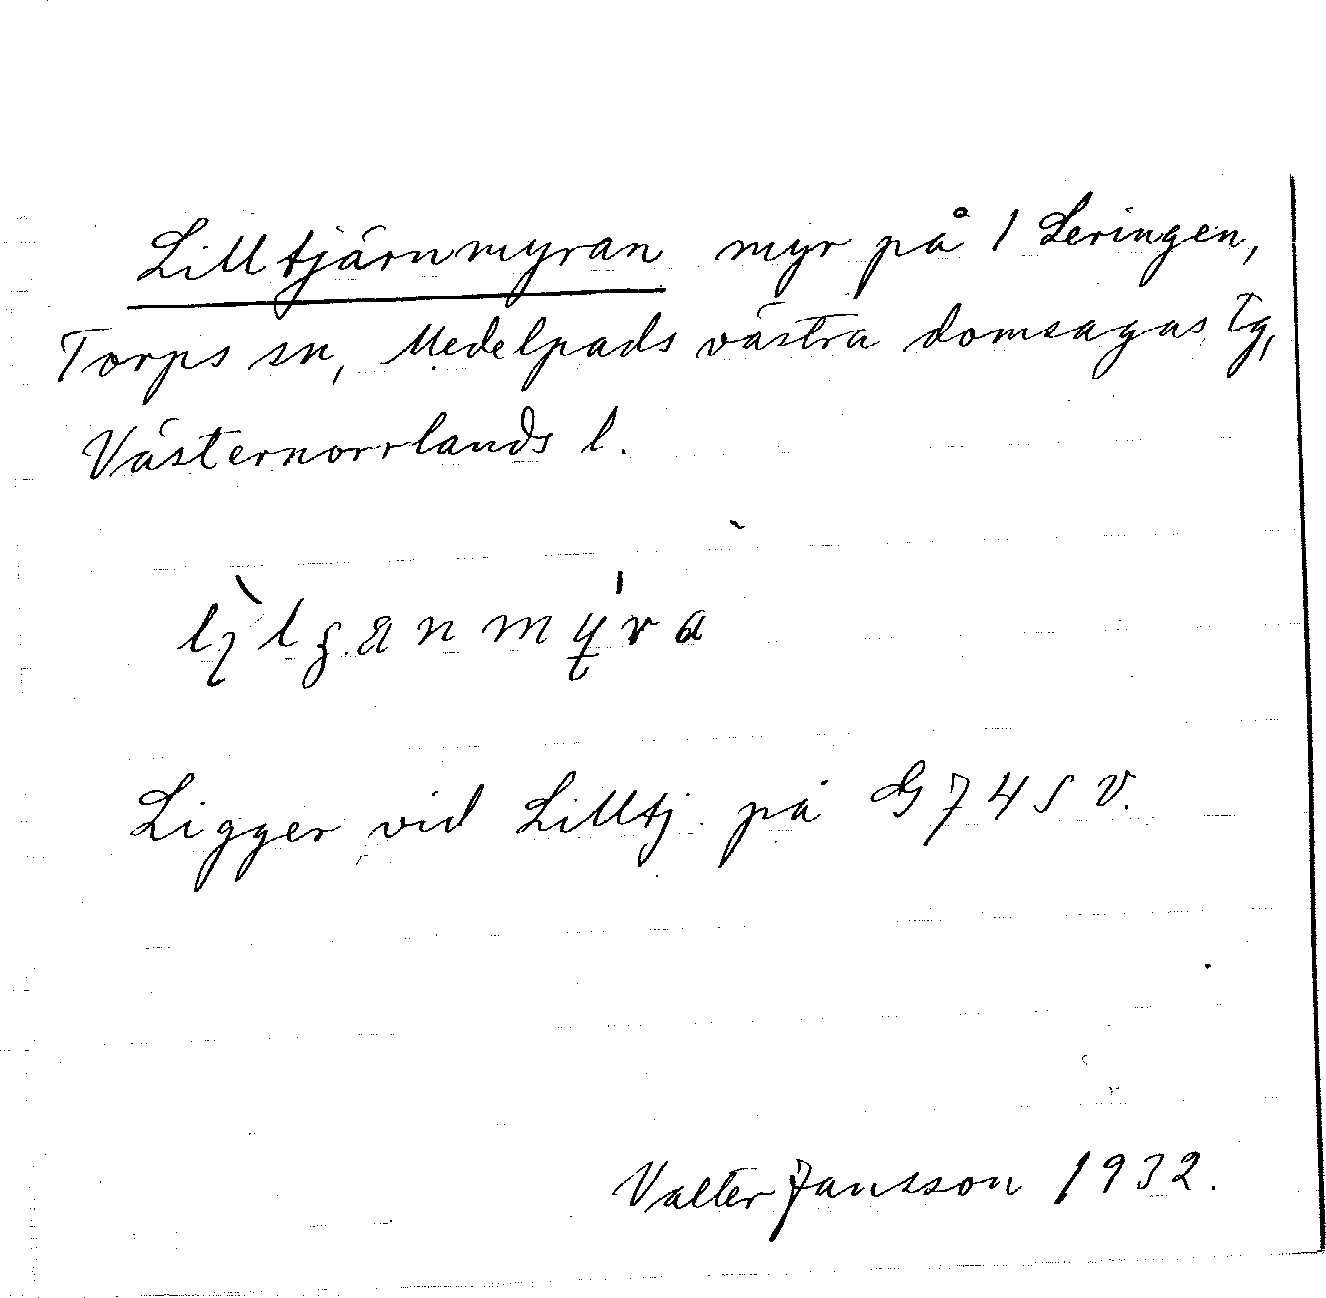 Lilltjärnmyran myr på 1 Leringen,
Torps sn, Medelpads västra domsagas tg,
Västernorrlands l.
Ligger vid Lilltj. på G 74 S V.
Valter Jansson 1932.